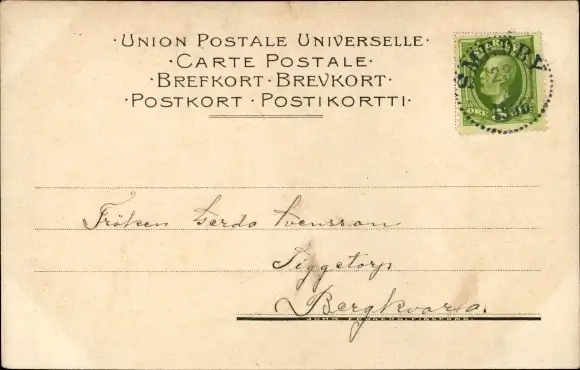 · UNION POSTALE UNIVERSELLE ·
· CARTE POSTALE ·
· BREFKORT · BREVKORT ·
· POSTKORT · POSTIKORTTI ·
Fröken Gerda Svensson
Siggetorp
Bergkvara.